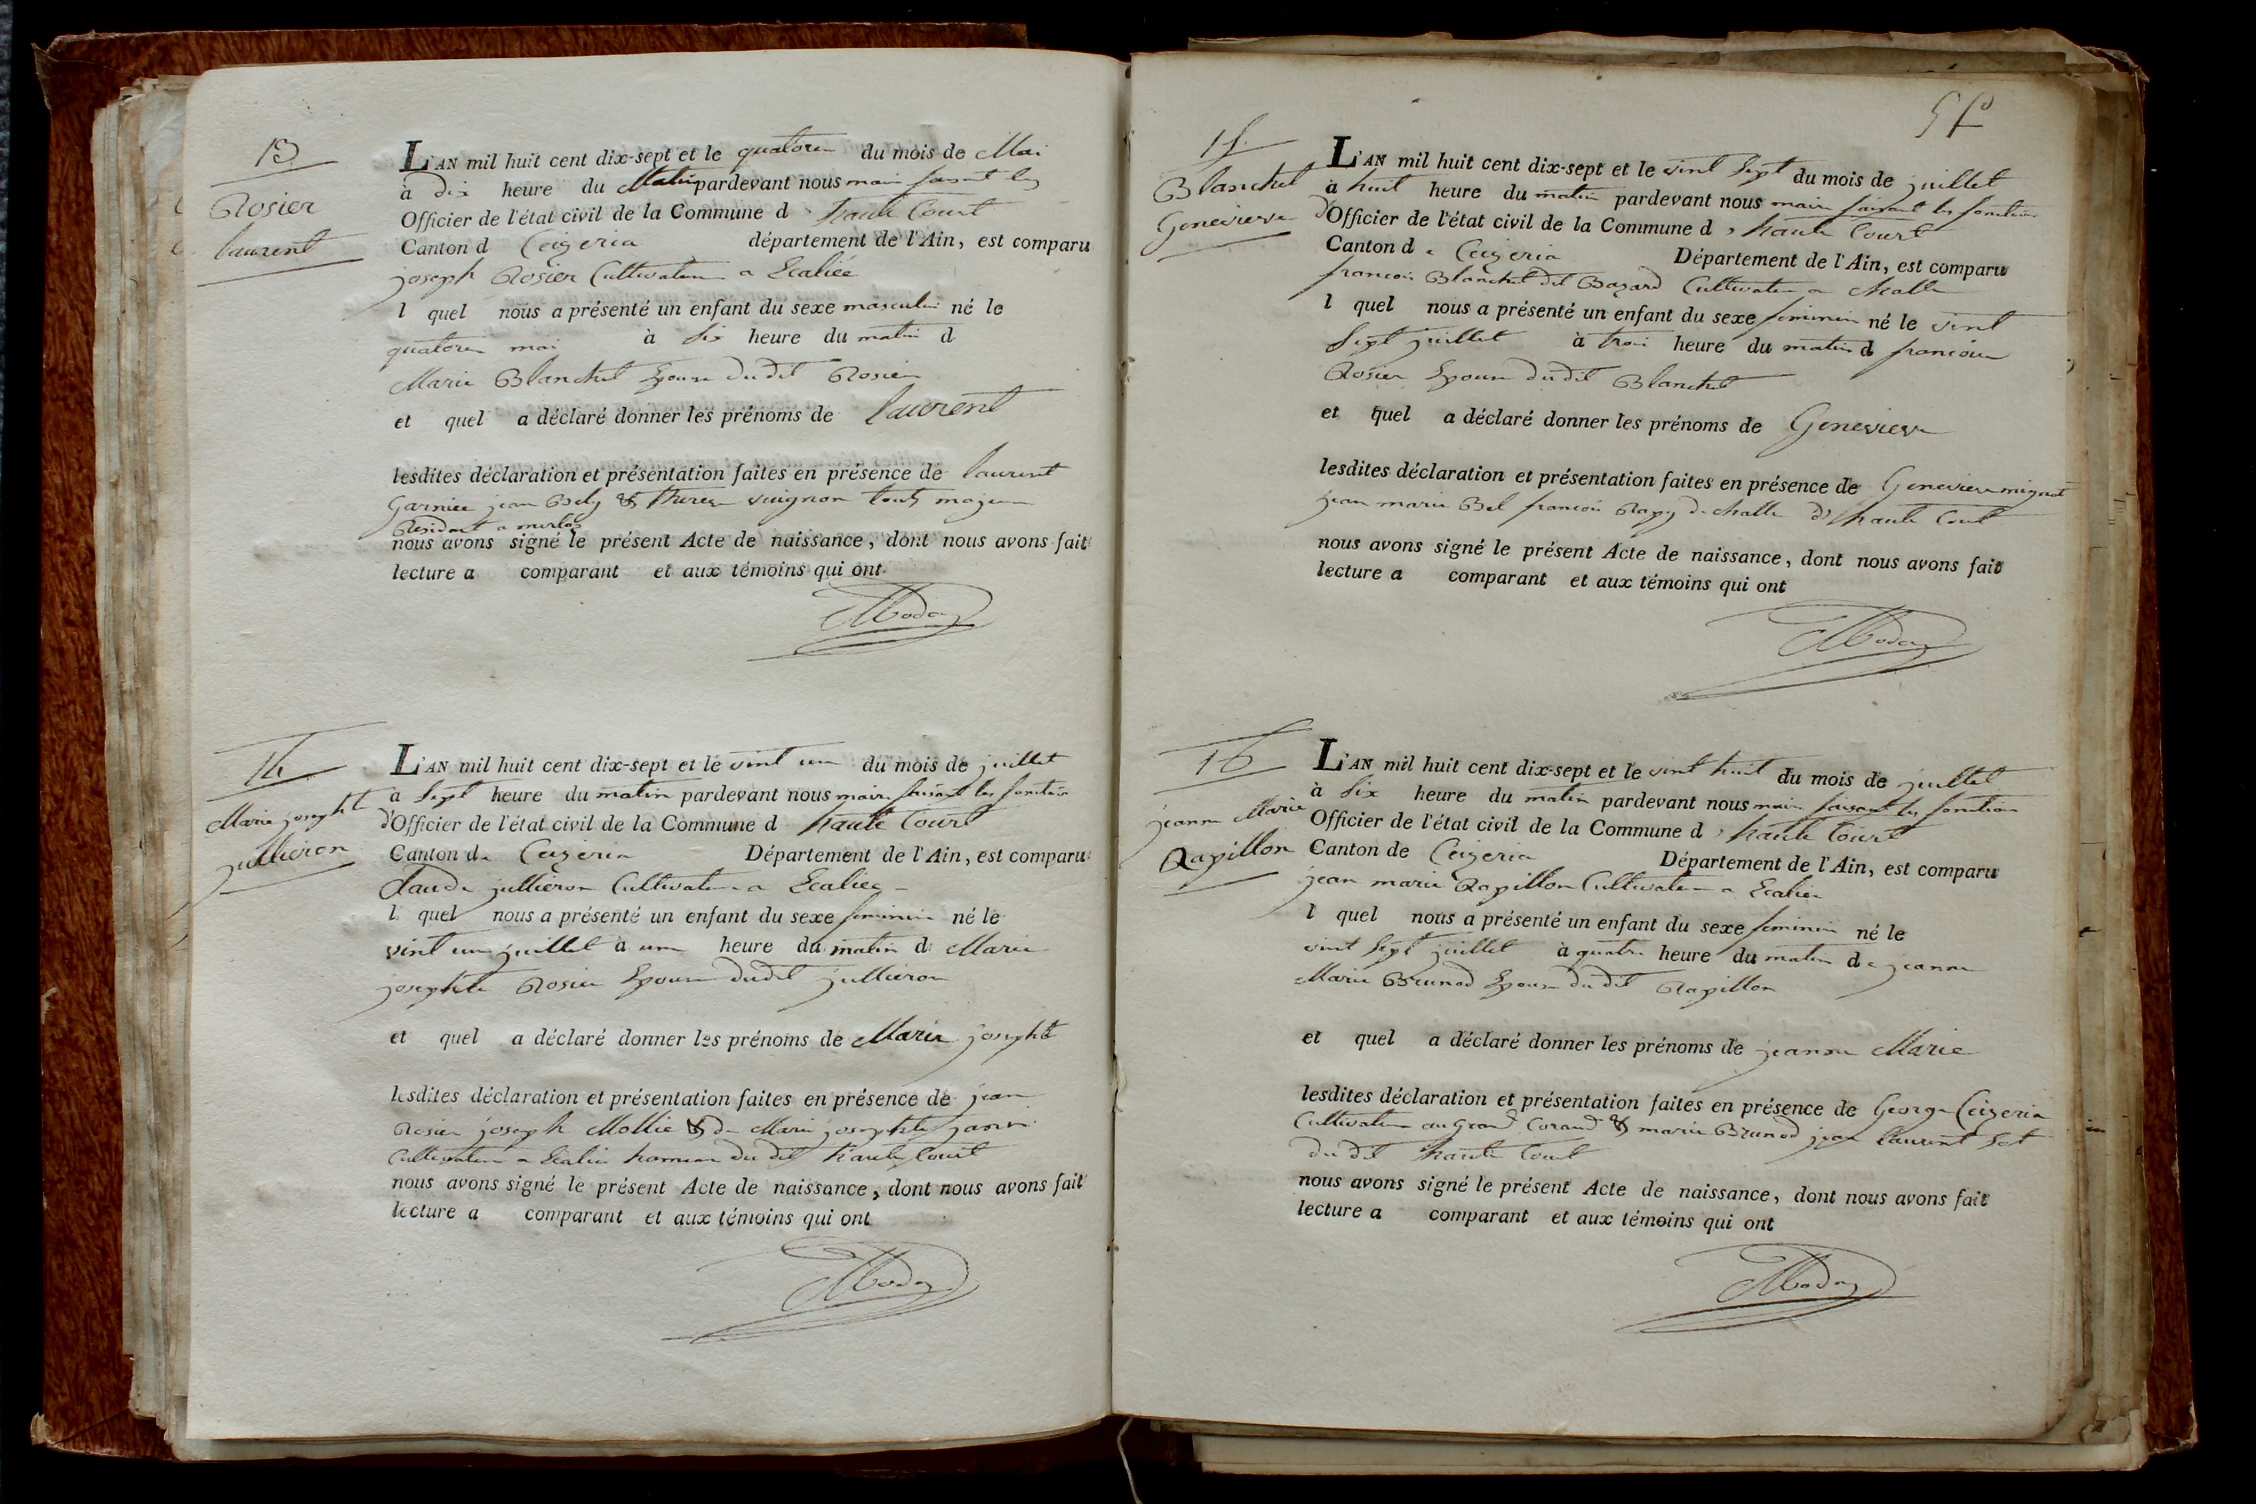 13
Rosier
laurent
L'AN mil huit cent dix-sept et le quatorze du mois de Mai
à dix heure du Matin pardevant nous maire faisant les
Officier de l'état civil de la Commune d haute Court
Canton d Ceizeria département de l'Ain, est comparu
joseph Rosier Cultivateur a Ecaliée
l quel nous a présenté un enfant du sexe masculin né le
quatorze mai à six heure du matin d
Marie Blanchet Epouse du dit Rosier
et quel a déclaré donner les prénoms de laurent
lesdites déclaration et présentation faites en présence de laurent
Garnier jean Bely & therese vuignon touts majeur
Resident a
nous avons signé le présent Acte de naissance, dont nous avons fait
lecture a comparant et aux témoins qui ont
14
Marie josephte
jullieron
L'AN mil huit cent dix-sept et le vint un du mois de juillet
à Sept heure du matin pardevant nous maire faisant les fonction
d'Officier de l'état civil de la Commune d haute Court
Canton de Ceizeria Département de l'Ain, est comparu
Claude jullieron Cultivateur a Ecaliee
l quel nous a présenté un enfant du sexe feminin né le
vint un juillet à une heure du matin d Marie
josephte Rosier Epouse dudit jullieron
et quel a déclaré donner les prénoms de Marie josephte
lesdites déclaration et présentation faites en présence de jean
Rosier joseph Mollie & de Marie josephte
Cultivateur a Ecalie hameau du dit haute Court
nous avons signé le présent Acte de naissance, dont nous avons fait
lecture a comparant et aux témoins qui ont
15
Blanchet
Genevieve
L'AN mil huit cent dix-sept et le vint Sept du mois de juillet
à huit heure du matin pardevant nous maire faisant les fonction
d'Officier de l'état civil de la Commune d haute Court
Canton de Ceizeria Département de l'Ain, est comparu
francois Blanchet dit Bazard Cultivateur a Challe
l quel nous a présenté un enfant du sexe feminin né le vint
Sept juillet à trois heure du matin d francoise
Rosier Epouse du dit Blanchet
et quel a déclaré donner les prénoms de Genevieve
lesdites déclaration et présentation faites en présence de Genevieve mignot
jean marie Bel francois Rapy de challe d haute Court
nous avons signé le présent Acte de naissance, dont nous avons fait
lecture a comparant et aux témoins qui ont
16
jeanne Marie
Rapillon
L'AN mil huit cent dix-sept et le vint huit du mois de juillet
à Six heure du matin pardevant nous maire faisant les fonction
Officier de l'état civil de la Commune d haute Court
Canton de Ceizeria Département de l'Ain, est comparu
jean marie Rapillon Cultivateur a Ecalie
l quel nous a présenté un enfant du sexe feminin né le
vint Sept juillet à quatre heure du matin de jeanne
Marie Brunod Epouse du dit Rapillon
et quel a déclaré donner les prénoms de jeanne Marie
lesdites déclaration et présentation faites en présence de George Ceizeria
Cultivateur au Grand Corand & marie Brunod jean laurent
du dit haute Court
nous avons signé le présent Acte de naissance, dont nous avons fait
lecture a comparant et aux témoins qui ont